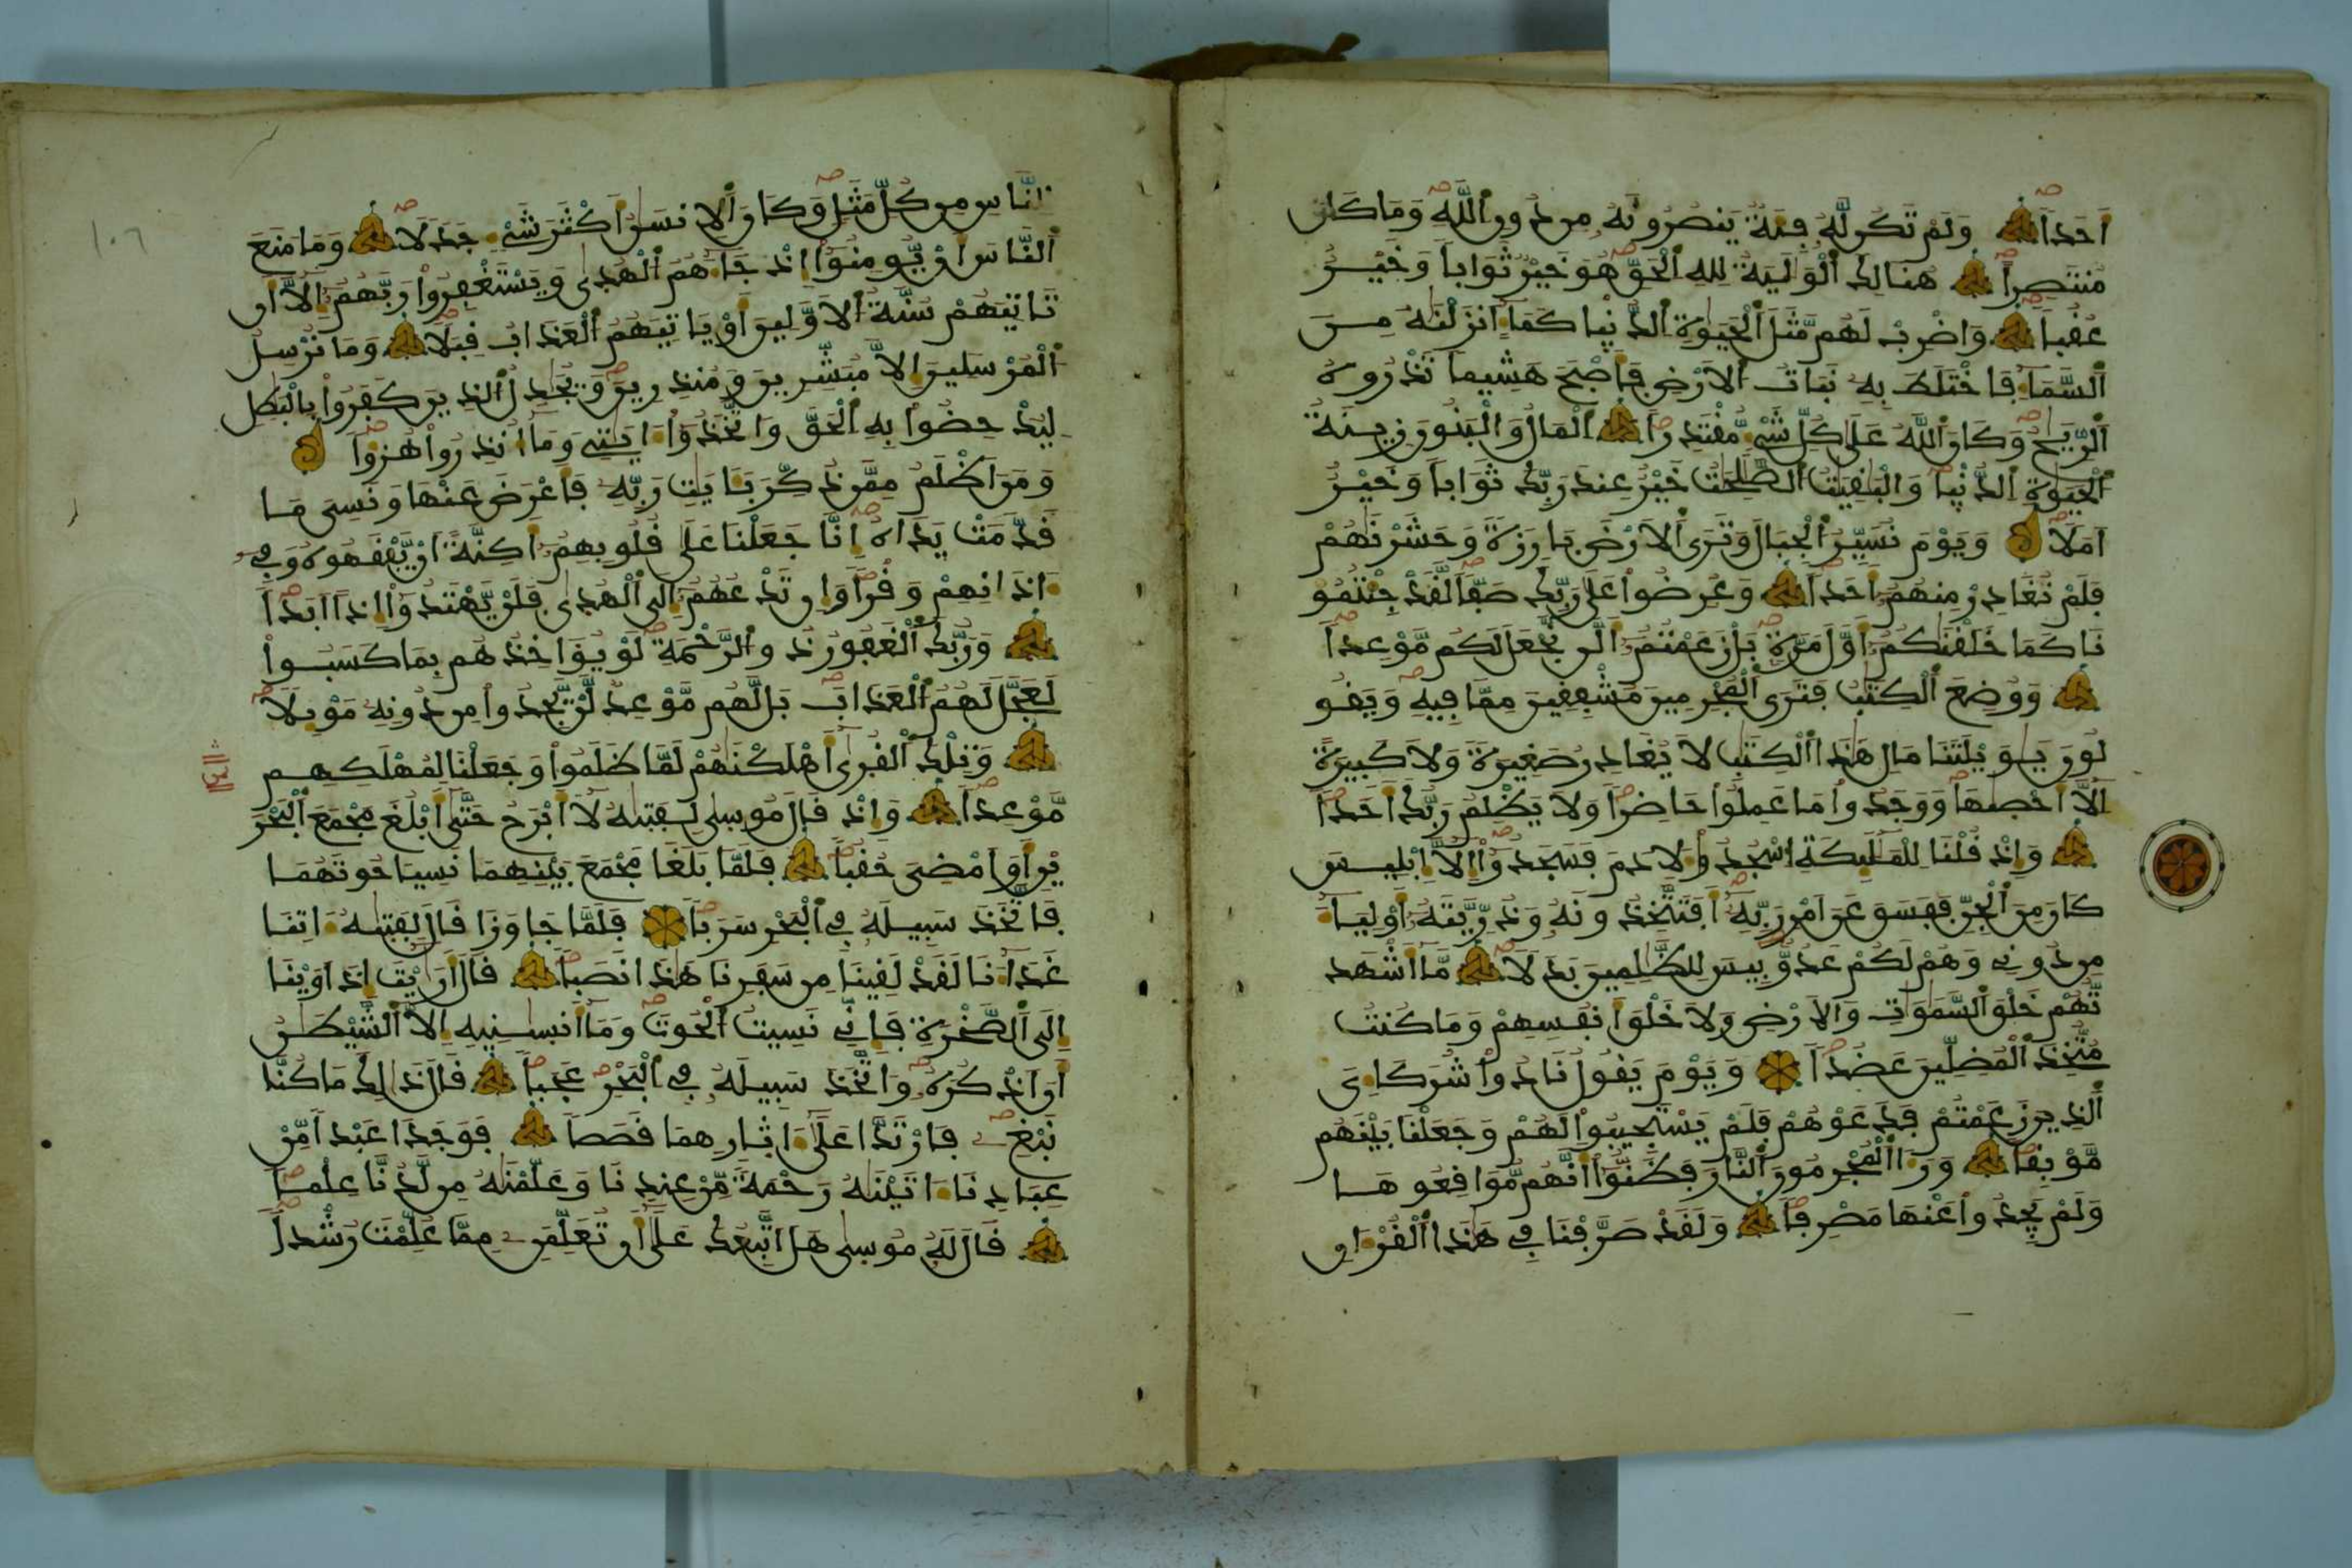 أَحَداً وَلَمْ تَكُن لَّهُ فِئَةٌ يَنصُرُونَهُ مِن دُونِ اللَّهِ وَمَا كَانَ
مُنتَصِراً هُنَالِكَ الْوَلَيَةُ لِلهِ الْحَقِّ هُوَ خَيْرٌ ثَوَاباً وَخَيْرٌ
عُقُباً وَاضْرِبْ لَهُم مَّثَلَ الْحَيَوةِ الدُّنْيا كَمَاءٍ اَنزَلْنَهُ مِنَ
السَّمَاءِ فَاخْتَلَطَ بِهِ نَبَاتُ الاَرْضِ فَأَصْبَحَ هَشِيماً تَذْرُوهُ
الرِّيَحُ وَكَانَ اللَّهُ عَلَى كُلِّ شَيْءٍ مُّقْتَدِراً الْمَالُ وَالْبَنُونَ زِينَةُ
الْحَيَوةِ الدُّنْيا وَالْبَقِيَتُ الصَّلِحَتُ خَيْرٌ عِندَ رَبِّكَ ثَوَاباً وَخَيْرٌ
اَمَلاً وَيَوْمَ نُسَيِّرُ الْجِبَالَ وَتَرَى الاَرْضَ بَارِزَةً وَحَشَرْنَهُمْ
فَلَمْ نُغَادِرْ مِنْهُمُ أَحَداً وَعُرِضُوا عَلَى رَبِّكَ صَفّاً لَّقَدْ جِئْتُمُو
نَا كَمَا خَلَقْنَكُمُ أَوَّلَ مَرَّةٍ بَلْ زَعَمْتُمُ أَلَّن نَّجْعَلَ لَكُم مَّوْعِداً
وَوُضِعَ الْكِتَبُ فَتَرَى الْمُجْرِمِينَ مُشْفِقِينَ مِمَّا فِيهِ وَيَقُو
لُونَ يَوَيْلَتَنَا مَالِ هَذَا الْكِتَبِ لاَ يُغَادِرُ صَغِيرَةً وَلاَ كَبِيرَةً
اِلاَّ أَحْصَهَا وَوَجَدُوا مَا عَمِلُوا حَاضِراً وَلاَ يَظْلِمُ رَبُّكَ أَحَداً
وَإِذْ قُلْنَا لِلْمَلَئِكَةِ اسْجُدُوا لأَدَمَ فَسَجَدُوا إِلاَّ إِبْلِيسَ
كَانَ مِنَ الْجِنِّ فَفَسَقَ عَنَ اَمْرِ رَبِّهِ أَفَتَتَّخِذُونَهُ وَذُرِّيَّتَهُ أَوْلِيَاءَ
مِن دُونِي وَهُمْ لَكُمْ عَدُوٌّ بِيسَ لِلظَّلِمِينَ بَدَلاً مَّا أَشْهَد
تُّهُمْ خَلْقَ السَّمَوَتِ وَالاَرْضِ وَلاَ خَلْقَ أَنفُسِهِمْ وَمَا كُنتُ
مُتَّخِذَ الْمُضِلِّينَ عَضُداً وَيَوْمَ يَقُولُ نَادُوا شُرَكَاءِيَ
الَّذِينَ زَعَمْتُمْ فَدَعَوْهُمْ فَلَمْ يَسْتَجِيبُوا لَهُمْ وَجَعَلْنَا بَيْنَهُم
مَّوْبِقاً وَرَءَا الْمُجْرِمُونَ النَّارَ فَظَنُّوا أَنَّهُم مُّوَاقِعُوهَا
وَلَمْ يَجِدُوا عَنْهَا مَصْرِفاً وَلَقَدْ صَرَّفْنَا فِي هَذَا الْقُرْءَانِ
١٠٦
لِلنَّاسِ مِن كُلِّ مَثَلٍ وَكَانَ الاِنسَنُ أَكْثَرَ شَيْءٍ جَدَلاً وَمَا مَنَعَ
النَّاسَ أَنْ يُّومِنُوا إِذْ جَاءَهُمُ الْهُدَى وَيَسْتَغْفِرُوا رَبَّهُمُ إِلاَّ أَن
تَاتِيَهُمْ سُنَّةُ الاَوَّلِينَ أَوْ يَاتِيَهُمُ الْعَذَابُ قِبَلاً وَمَا نُرْسِلُ
الْمُرْسَلِينَ إِلاَّ مُبَشِّرِينَ وَمُنذِرِينَ وَيُجَدِلُ الذِينَ كَفَرُوا بِالْبَطِلِ
لِيُدْحِضُوا بِهِ الْحَقَّ وَاتَّخَذُوا ءَايَتِي وَمَا أُنذِرُوا هُزُؤاً
وَمَنَ اَظْلَمُ مِمَّن ذُكِّرَ بِئَايَتِ رَبِّهِ فَأَعْرَضَ عَنْهَا وَنَسِيَ مَا
قَدَّمَتْ يَدَاهُ إِنَّا جَعَلْنَا عَلَى قُلُوبِهِمُ أَكِنَّةً أَنْ يَّفْقَهُوهُ وَفِي
ءَاذَانِهِمْ وَقْراً وَإِن تَدْعُهُمُ إِلَى الْهُدَى فَلَنْ يَّهْتَدُوا إِذاً أَبَداً
وَرَبُّكَ الْغَفُورُ ذُو الرَّحْمَةِ لَوْ يُؤَاخِذُهُم بِمَا كَسَبُوا
لَعَجَّلَ لَهُمُ الْعَذَابَ بَل لَّهُم مَّوْعِدٌ لَّنْ يَّجِدُوا مِن دُونِهِ مَوْئِلاً
وَتِلْكَ الْقُرَى أَهْلَكْنَهُمْ لَمَّا ظَلَمُوا وَجَعَلْنَا لِمُهْلَكِهِم
مَّوْعِداً وَإِذْ قَالَ مُوسَى لِفَتَىهُ لاَ أَبْرَحُ حَتَّى أَبْلُغَ مَجْمَعَ الْبَحْرَ
يْنِ أَوَ اَمْضِيَ حُقُباً فَلَمَّا بَلَغَا مَجْمَعَ بَيْنِهِمَا نَسِيَا حُوتَهُمَا
فَاتَّخَذَ سَبِيلَهُ فِي الْبَحْرِ سَرَباً فَلَمَّا جَاوَزَا قَالَ لِفَتَىهُ ءَاتِنَا
غَدَاءَنَا لَقَدْ لَقِينَا مِن سَفَرِنَا هَذَا نَصَباً قَالَ أَرَايْتَ إِذَ اَوَيْنَا
إِلَى الصَّخْرَةِ فَإِنِّي نَسِيتُ الْحُوتَ وَمَا أَنسَىنِيهِ إِلاَّ الشَّيْطَنُ
أَنَ اَذْكُرَهُ وَاتَّخَذَ سَبِيلَهُ فِي الْبَحْرِ عَجَباً قَالَ ذَلِكَ مَا كُنَّا
نَبْغِ فَارْتَدَّا عَلَى ءَاثَارِهِمَا قَصَصاً فَوَجَدَا عَبْداً مِّنْ
عِبَادِنَا ءَاتَيْنَهُ رَحْمَةً مِّنْ عِندِنَا وَعَلَّمْنَهُ مِن لَّدُنَّا عِلْماً
قَالَ لَهُ مُوسَى هَلَ اتَّبِعُكَ عَلَى أَن تُعَلِّمَنِ مِمَّا عُلِّمْتَ رُشْداً